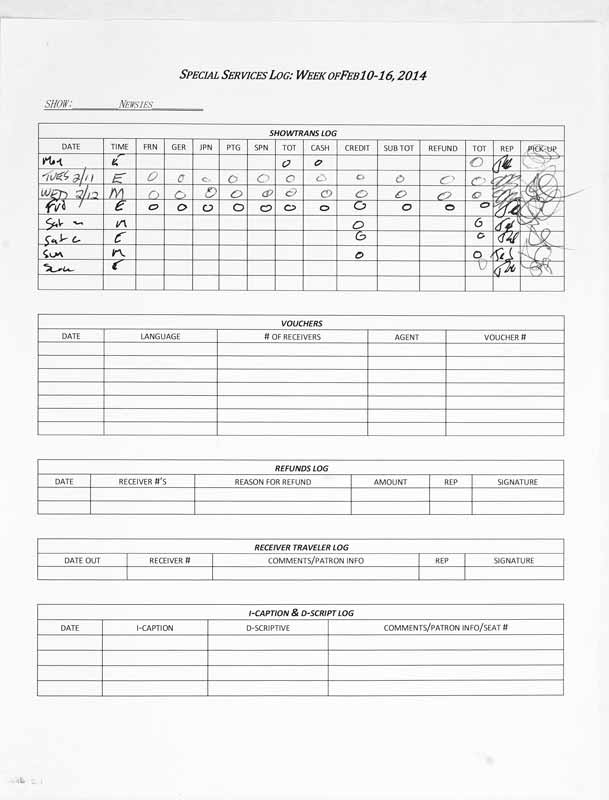 SPECIAL SERVICES LOG: WEEK OFFEB10-16, 2014
SHOW: NEWSIES
SHOWTRANS LOG
DATE TIME FRN GER JPN PTG SPN TOT CASH CREDIT SUB TOT REFUND TOT REP PICK-UP
Mon E 0 0 0
TUES 2/11 E 0 0 0 0 0 0 0 0 0 0 0
WED 2/12 M 0 0 0 0 0 0 0 0 0 0 0
Fri E 0 0 0 0 0 0 0 0 0 0 0
Sat m 0 0
Sat E 0 0
Sun m 0 0
E 0
VOUCHERS
DATE LANGUAGE # OF RECEIVERS AGENT VOUCHER #
REFUNDS LOG
DATE RECEIVER #'S REASON FOR REFUND AMOUNT REP SIGNATURE
RECEIVER TRAVELER LOG
DATE OUT RECEIVER # COMMENTS/PATRON INFO REP SIGNATURE
I-CAPTION & D-SCRIPT LOG
DATE I-CAPTION D-SCRIPTIVE COMMENTS/PATRON INFO/SEAT #